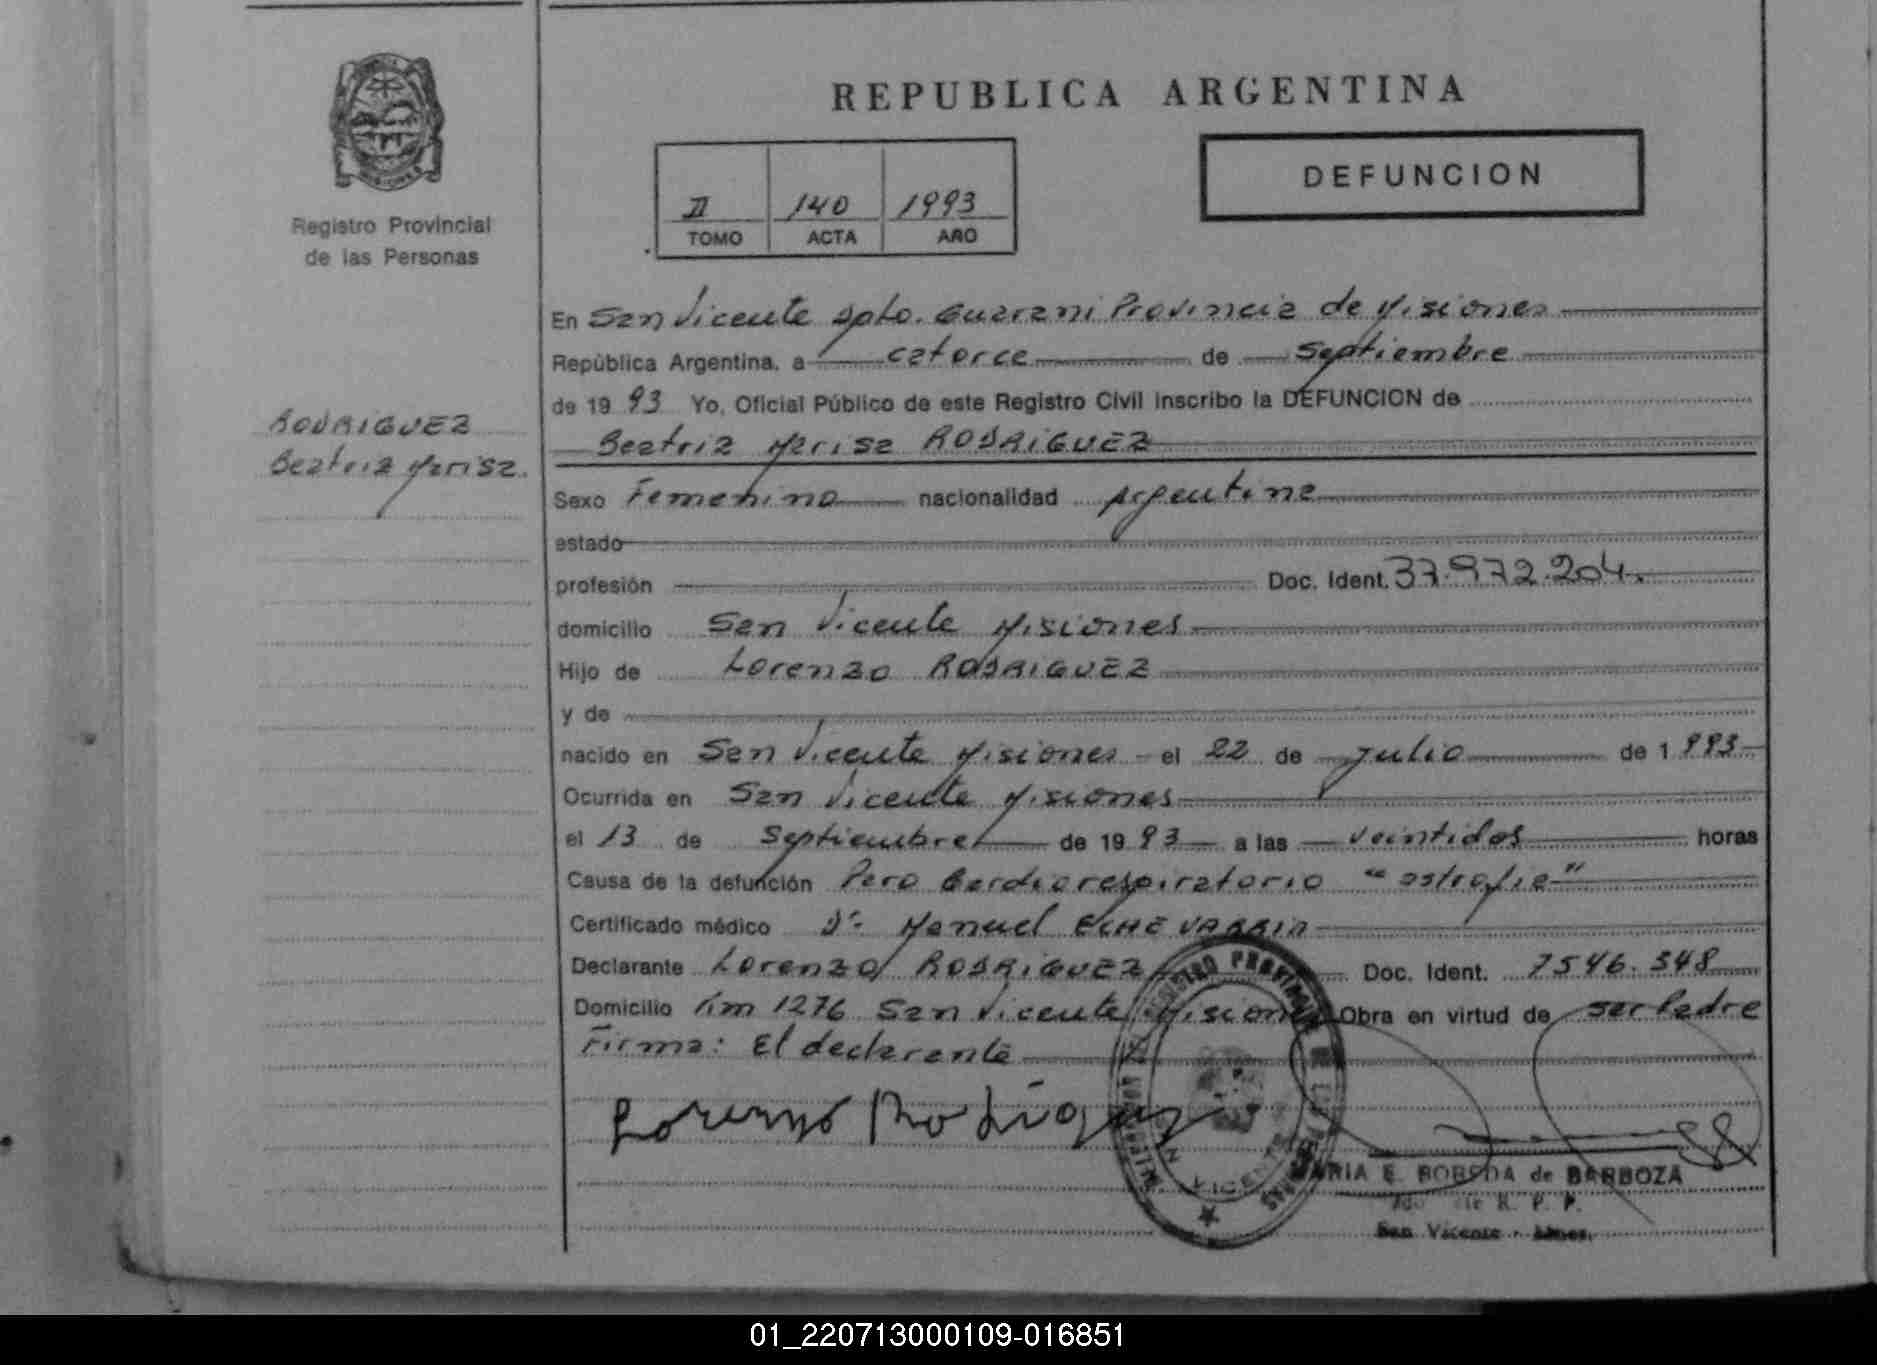 REPUBLICA ARGENTINA
DEFUNCION
MISIONES
Registro Provincial
de las Personas
II 140 1993
TOMO ACTA AÑO
RODRIGUEZ
Beatriz Marisa.
En San Vicente Dpto. Guarani Provincia de Misiones
República Argentina, a catorce de Septiembre
de 1993 Yo, Oficial Público de este Registro Civil inscribo la DEFUNCION de
Beatriz Marisa RODRIGUEZ
Sexo Femenino nacionalidad Argentina
estado
profesión Doc. Ident. 37.972.204.
domicilio San Vicente Misiones
Hijo de Lorenzo RODRIGUEZ
y de
nacido en San Vicente Misiones - el 22 de Julio de 1993
Ocurrida en San Vicente Misiones
el 13 de Septiembre de 1993 a las veintidos horas
Causa de la defunción Paro Cardiorespiratorio "astrofia"
Certificado médico Dr. Manuel ECHEVARRIA
Declarante Lorenzo RODRIGUEZ Doc. Ident. 7546.348
Domicilio Km 1276 San Vicente Misiones Obra en virtud de ser Padre
Firma: El declarante
Lorenzo Rodriguez
MARIA E. BOBEDA de BARBOZA
R. P. P.
San Vicente - Mnes.
01_220713000109-016851